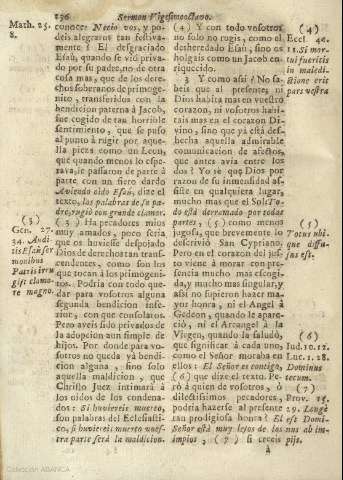 196 Sermon Vigesimooctavo.
Math. 25.
8.
conocer: Necio vos, y po-
deis alegraros tan festiva-
mente? El desgraciado
Esaù, quando se viò priva-
do por su padre, no de otra
cosa mas, que de los dere-
chos soberanos de primoge-
nito, transferidos con la
bendicion paterna à Jacob,
fue cogido de tan horrible
sentimiento, que se puso
al punto à rugir por aque-
lla pieza como un Leon,
que quando menos lo espe-
rava, le passaron de parte à
parte con un fiero dardo
Aviendo oido Esaù, dize el
texto, las palabras de su pa-
dre, rugiò con grande clamor.
(3)
Gen. 27.
34. Audi-
tis Esau ser
monibus
Patris irru
git clamo-
re magno.
(3) Ha pecadores mios
muy amados, pero seria
que os huviesse despojado
Dios de derechos tan trans-
cendentes, como son los
que tocan à los primogeni-
tos. Podria con todo que-
dar para vosotros alguna
segunda bendicion infe-
rior, con que consolaros.
Pero aveis sido privados de
la adopcion aun simple de
hijos. Por donde para vo-
sotros no queda yà bendi-
cion alguna, sino solo
aquella maldicion, que
Christo Juez intimarà à
los oidos de los condena-
dos: Si huviereis muerto,
son palabras del Eclesiasti-
co, si huviereis muerto vues-
tra parte serà la maldicion.
(4) Y con todo vosotros
no solo no rugis, como el
desheredado Esaù, sino os
holgais como un Jacob en-
riquecido.
(4)
Eccl. 41.
12. Si mor-
tui fueritis
in maledi-
ctione erit
pars vestra
3 Y como assi? No sa-
beis que al presente, ni
Dios habita mas en vuestro
corazon, ni vosotros habi-
tais mas en el corazon Di-
vino, sino que yà està des-
hecha aquella admirable
comunicacion de afectos,
que antes avia entre los
dos? Yo sè que Dios por
razon de su inmensidad as-
siste en qualquiera lugar,
mucho mas que el Sol: To-
do està derramado por todas
partes, (5) como menos
jugosi, que brevemente lo
descriviò San Cypriano.
(5)
Totus ubi-
que diffu-
sus est.
Pero en el corazon del jus-
to viene à morar con pre-
sencia mucho mas escogi-
da, y mucho mas singular, y
assi no supieron hazer ma-
yor honra, ni el Angel à
Gedeon, quando le apare-
ciò, ni el Arcangel à la
Virgen, quando la saludò,
que significar à cada uno,
como el Señor moraba en
ellos: El Señor es contigo,
(6) que dize el texto. Pe-
rò à quien de vosotros, ò
dilectissimos pecadores,
podria hazerse al presente
tan prodigiosa honra? El
Señor està muy lejos de los
impios, (7) si creeis pijs.
(6)
Iud. 10. 12.
Luc. 1. 28.
Dominus
tecum.
(7)
Prov. 15.
29. Longè
est Domi-
nus ab im-
à
Colección ABANCA